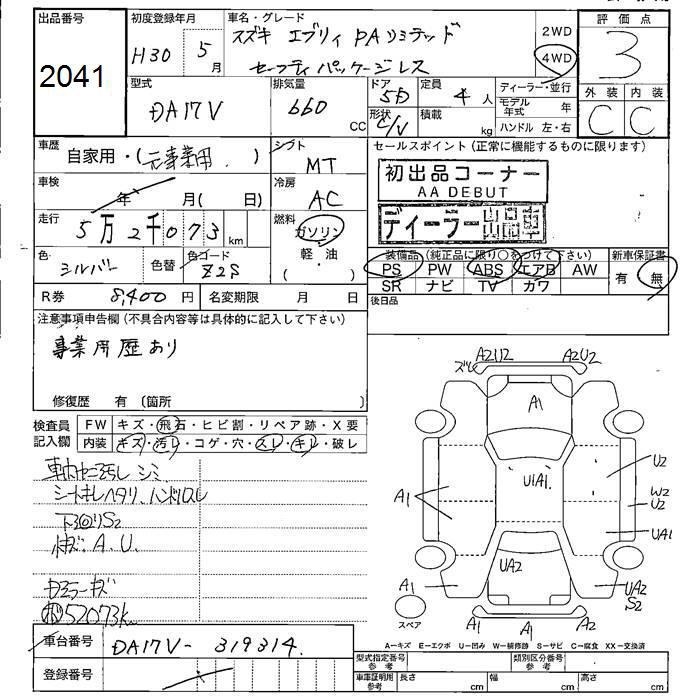 出品番号 初度登録年月 車名・グレード 評価点
2041 H30 5月 スズキ エブリィ PAリミテッド 2WD 3
セーフティパッケージレス 4WD
型式 排気量 ドア 定員 ディーラー・並行 外装 内装
DA17V 660 CC 5D 4人 モデル年式 年 C C
形状 C/V 積載 kg ハンドル 左・右
車歴 自家用・(元事業用) シフト MT セールスポイント(正常に機能するものに限ります)
初出品コーナー
AA DEBUT
車検 年 月( 日) 冷房 AC
ディーラー出品車
走行 5万2千073km 燃料 ガソリン 軽・油 ( )
色 シルバー 色替 色コード Z2S
装備品(純正品に限り○をつけて下さい) 新車保証書
PS PW ABS エアB AW 有 無
SR ナビ TV カワ
R券 8,400円 名変期限 月 日 後日品
注意事項申告欄(不具合内容等は具体的に記入して下さい)
事業用歴あり
修復歴 有(箇所 )
検査員記入欄 FW キズ・飛石・ヒビ割・リペア跡・X要
内装 キズ・汚レ・コゲ・穴・スレ・キレ・破レ
シミ
シートキレヘタリ、ハンドルスレ
下回りS2
A.U.
52073k
A2U2 A2U2
A1
U1A1
U2
W2
U2
A1
UA1
UA2
A1 UA2
S2
スペア
A1 A1 A2
A-キズ E-エクボ U-凹み W-補修跡 S-サビ C-腐食 XX-交換済
車台番号 DA17V-319314
型式指定番号 参考 類別区分番号 参考
登録番号
車庫証明用 参考 長さ cm 幅 cm 高さ cm